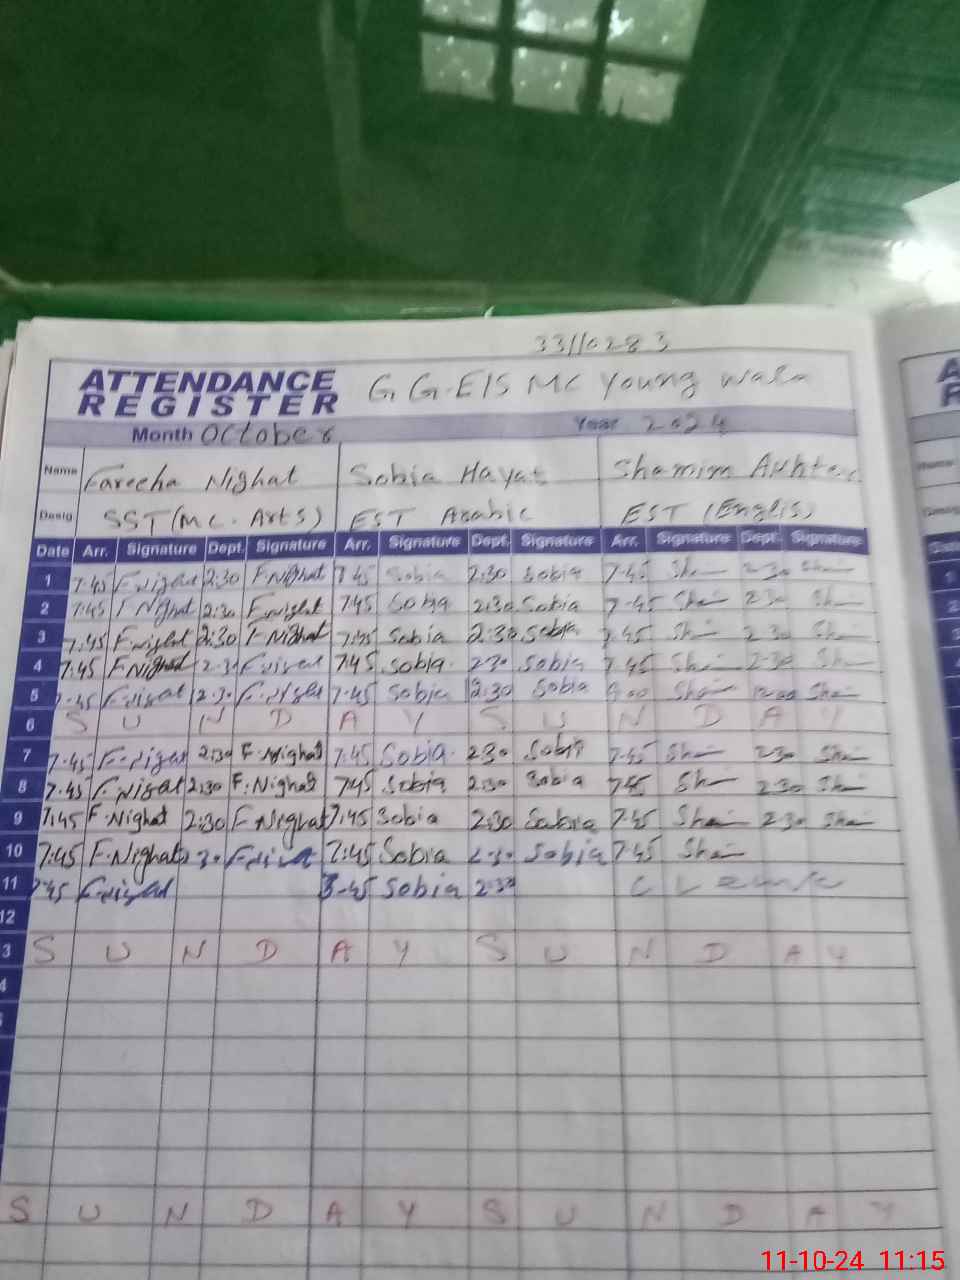 33110283
ATTENDANCE REGISTER G G.E/S MC Young wala
Month October Year 2024
Name Fareeha Nighat Sobia Hayat Shamim Akhter
Desig SST (MC. Arts) EST Arabic EST (Englis)
Date Arr. Signature Dept. Signature Arr. Signature Dept. Signature Arr. Signature Dept. Signature
1 7:45 F.Nighat 2:30 F.Nighat 7:45 Sobia 2:30 Sobia 7-45 Sha 2-30 Sha
2 7:45 F Nighat 2:30 F.Nighat 7:45 Sobia 2:30 Sobia 7-45 Sha 2 30 Sha
3 7:45 F.Nighat 2:30 F-Nighat 7:45 Sobia 2:30 Sobia 7.45 Sha 2 30 Sha
4 7:45 F.Nighat 2-30 7:45 Sobia. 2:30 Sobia 7-45 Sha 2-30 Sha
5 7:45 F.Nighat 2:30 F.Nighat 7-45 Sobia 2:30 Sobia Sha Sha
6 S U N D A Y S U N D A Y
7 7:45 F.Nighat 2:30 F.Nighat 7:45 Sobia. 2:30 Sobia 7-45 Sha 2-30 Sha
8 7:45 F.Nighat 2:30 F.Nighat 7:45 Sobia 2:30 Sobia 7-45 Sha 2-30 Sha
9 7:45 F.Nighat 2:30 F Nighat 7:45 Sobia 2:30 Sobia 7-45 Sha 2-30 Sha
10 7:45 F.Nighat 2:30 7:45 Sobia 2:30 Sobia 7-45 Sha
11 7:45 F.Nighat Sobia 2:30 C Leave
12
3 S U N D A Y S U N D A Y
4
S U N D A Y S U N D A Y
11-10-24 11:15